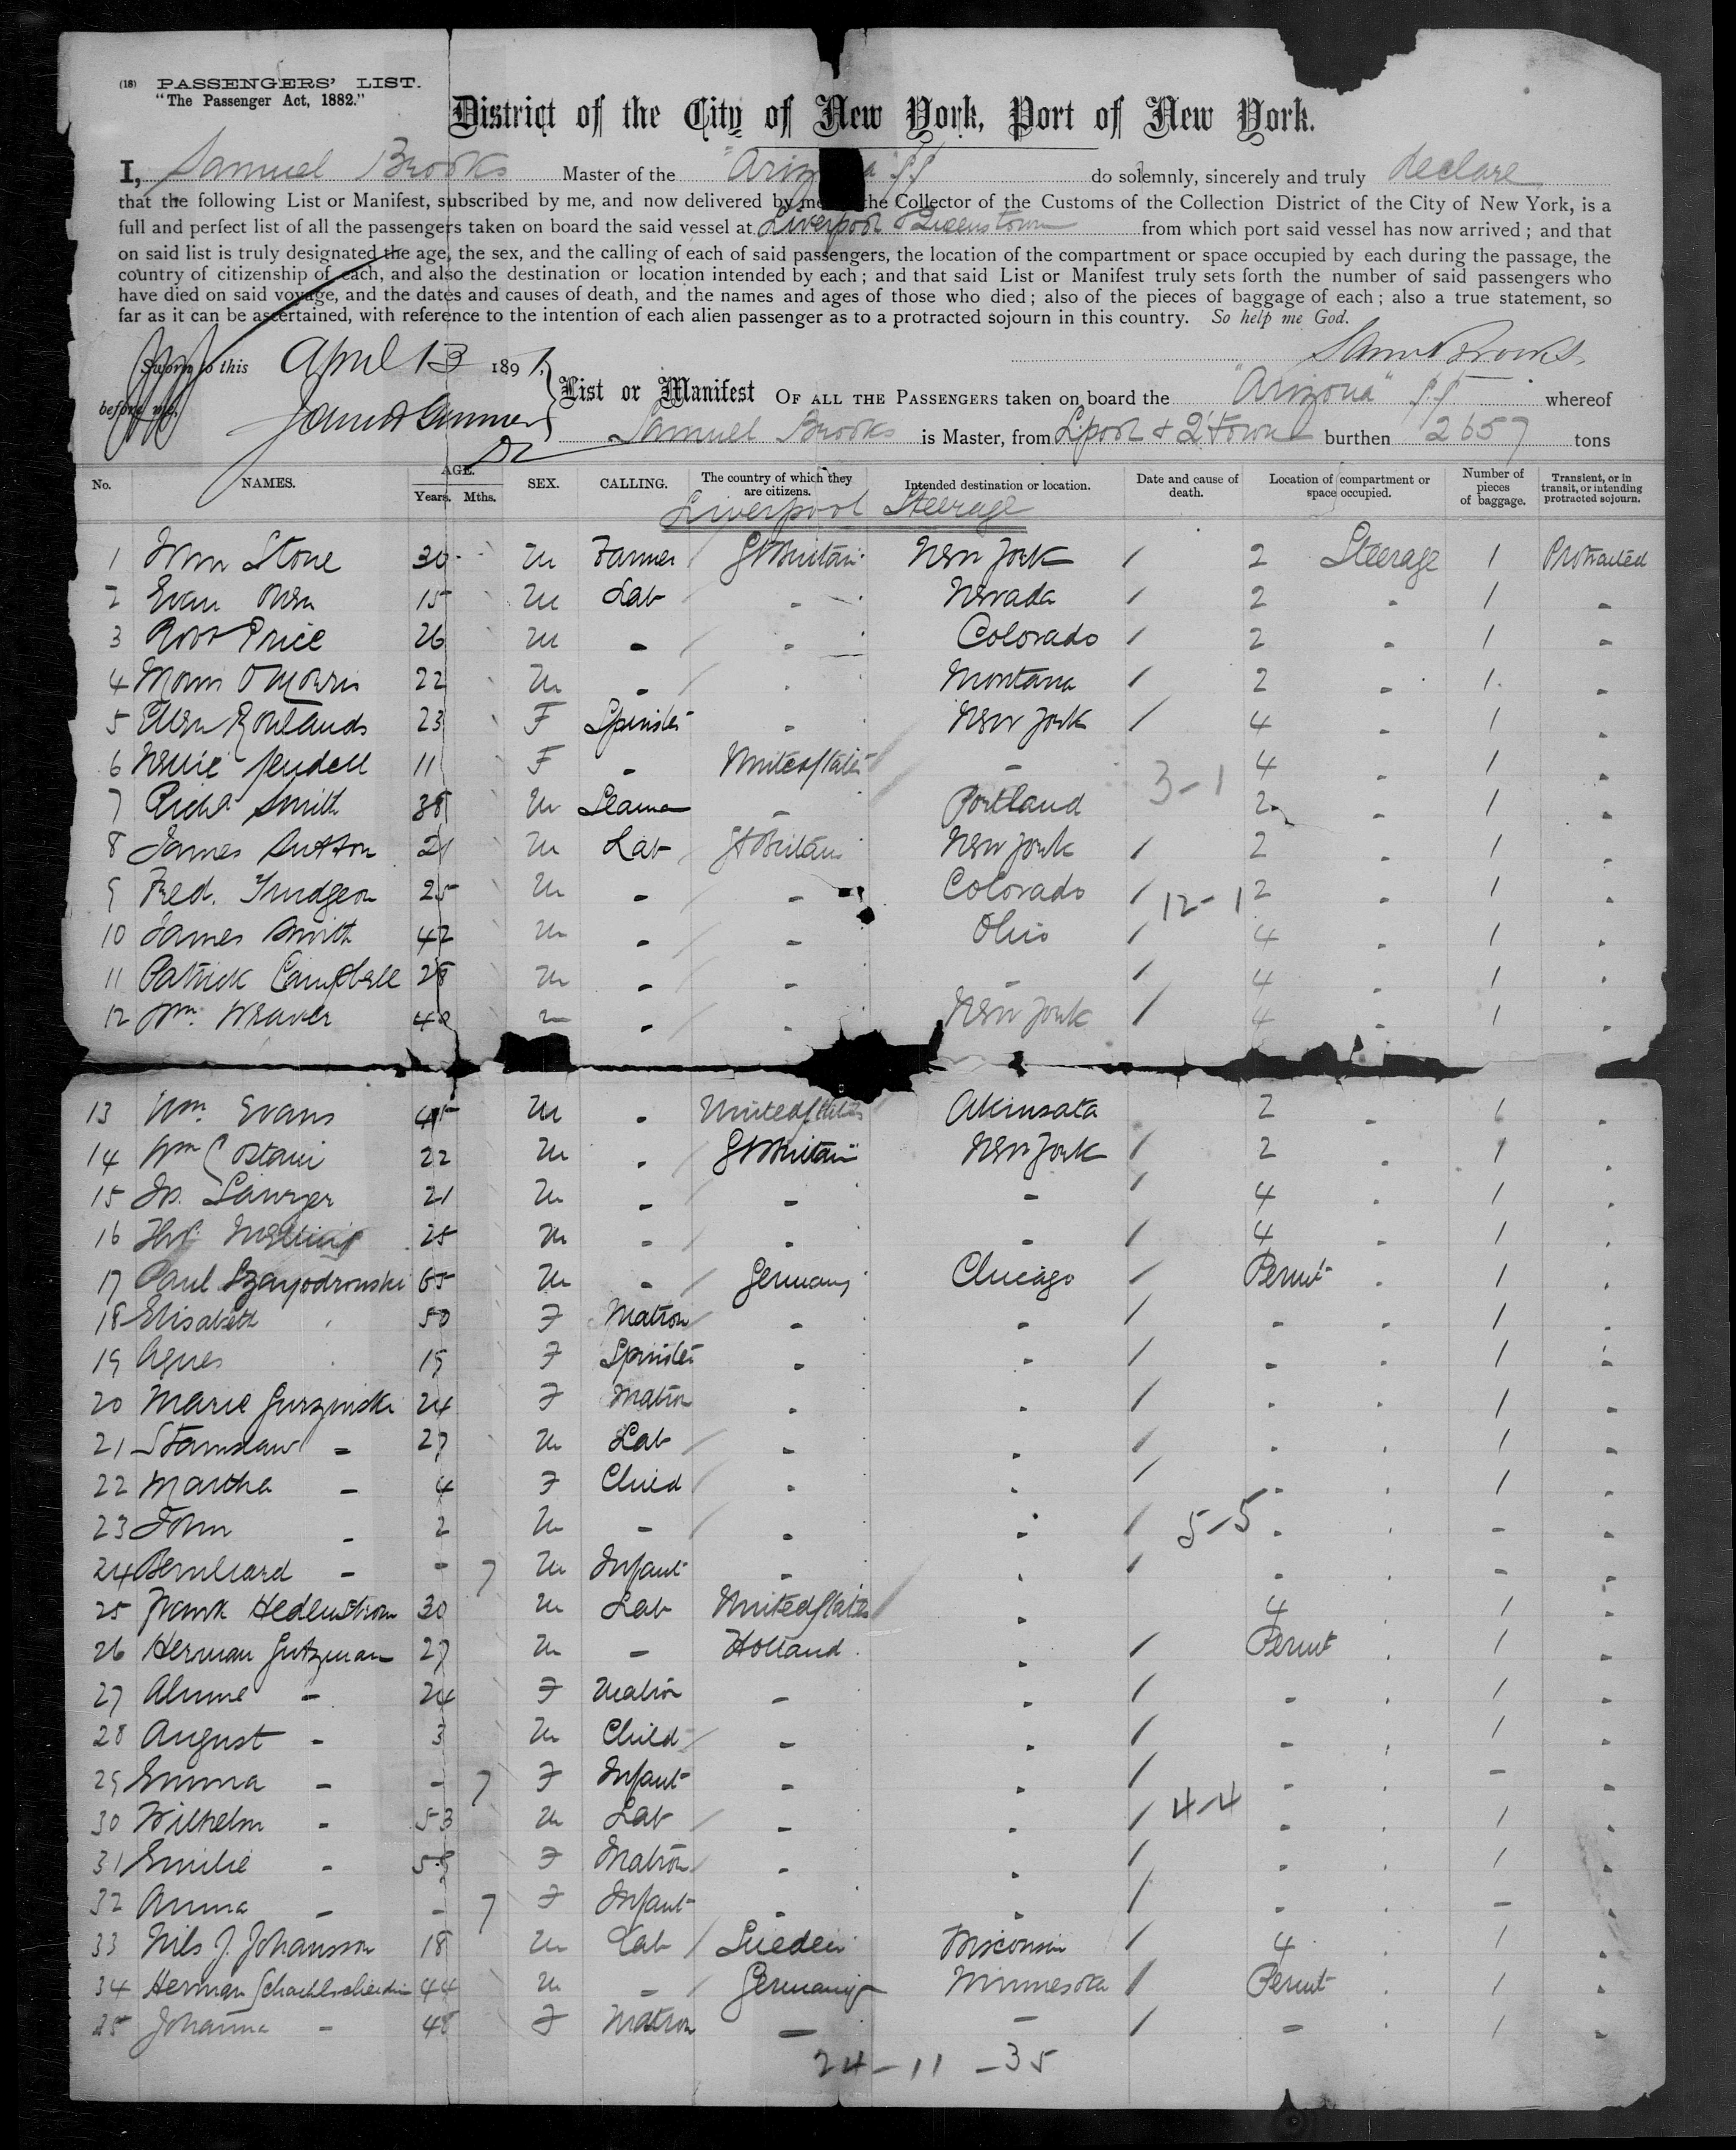 (18) PASSENGERS' LIST.
"The Passenger Act, 1882."
District of the City of New York, Port of New York.
I, Samuel Brooks Master of the "Arizona" SS do solemnly, sincerely and truly declare
that the following List or Manifest, subscribed by me, and now delivered by me the Collector of the Customs of the Collection District of the City of New York, is a
full and perfect list of all the passengers taken on board the said vessel at Liverpool & Queenstown from which port said vessel has now arrived; and that
on said list is truly designated the age, the sex, and the calling of each of said passengers, the location of the compartment or space occupied by each during the passage, the
country of citizenship of each, and also the destination or location intended by each; and that said List or Manifest truly sets forth the number of said passengers who
have died on said voyage, and the dates and causes of death, and the names and ages of those who died; also of the pieces of baggage of each; also a true statement, so
far as it can be ascertained, with reference to the intention of each alien passenger as to a protracted sojourn in this country. So help me God.
Saml Brooks
Sworn to this April 13 1891.
before me,
List or Manifest OF ALL THE PASSENGERS taken on board the "Arizona" SS whereof
Samuel Brooks is Master, from L'pool & Q'town burthen 2657 tons
No. NAMES. AGE. Years. Mths. SEX. CALLING. The country of which they are citizens. Intended destination or location. Date and cause of death. Location of compartment or space occupied. Number of pieces of baggage. Transient, or in transit, or intending protracted sojourn.
Liverpool Steerage
1 Wm Stone 30 M Farmer Gt Britain New York / 2 Steerage 1 Protracted
2 Evan Owen 15 M Lab - Nevada / 2 - 1 -
3 Robt Price 26 M - - Colorado / 2 - 1 -
4 Morris O Morris 22 M - - Montana / 2 - 1 -
5 Ellen Rowlands 23 F Spinster - New York / 4 - 1 -
6 Nellie 11 F - United States - 4 - 1 -
3-1
7 Richd Smith 38 M - Portland 2 - 1 -
8 James Sutton 21 M Lab Gt Britain New York / 2 - 1 -
9 Fred. Trudgeon 25 M - - Colorado / 12-1 2 - 1 -
10 James Smith 42 M - - Ohio / 4 - 1 -
11 Patrick Campbell 28 M - - - / 4 - 1 -
12 Wm. Weaver 40 M - - New York / 4 - 1 -
13 Wm. Evans 45 M - United States 2 - 1 -
14 Wm 22 M - Gt Britain New York / 2 - 1 -
15 Js. Sawyer 21 M - - - / 4 - 1 -
16 25 M - - - / 4 - 1 -
17 Paul 65 M - Germany Chicago / Permt - 1 -
18 Elisabeth 50 F Matron - - / - - 1 -
19 Agnes 19 F Spinster - - / - - 1 -
20 Marie 24 F Matron - - / - - 1 -
21 Stanislaw - 27 M Lab - - / - - 1 -
22 Martha - 4 F Child - - / - - 1 -
23 John - 2 M - - - / 5-5 - - - -
24 Bernhard - - 7 M Infant - - / - - - -
25 Frank Hedenstrom 30 M Lab United States - 4 - 1 -
26 Herman Gutzman 27 M - Holland - / Permt - 1 -
27 - 24 F Matron - - / - - 1 -
28 August - 3 M Child - - / - - 1 -
29 Emma - - 7 F Infant - - / - - - -
30 Wilhelm - 53 M Lab - - / 4-4 - - 1 -
31 Emilie - F Matron - - / - - 1 -
32 Anna - - 7 F Infant - - / - - - -
33 Nils J. Johansson 18 M Lab Sweden Wisconsin / 4 - 1 -
34 Herman 44 M - Germany Minnesota / Permt - 1 -
35 Johanna - 48 F Matron - - / - 1 -
24-11-35